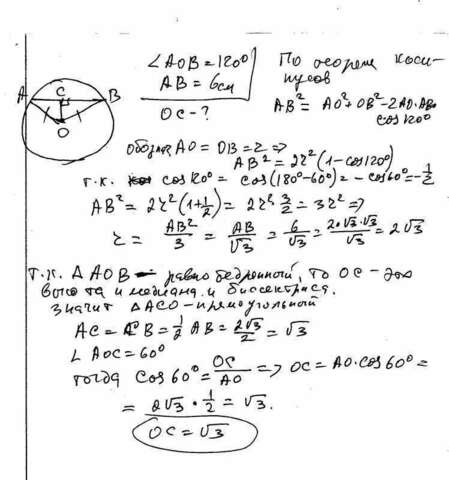 ∠AOB = 120°
AB = 6 см
OC - ?
A C B
O
По теореме коси-
нусов
AB² = AO² + OB² - 2AO·
cos 120°
AO = OB = r ⇒
AB² = 2r²(1 - cos 120°)
т.к. cos 120° = cos(180° - 60°) = - cos 60° = -1/2
AB² = 2r²(1 + 1/2) = 2r² · 3/2 = 3r² ⇒
r = AB²/3 = AB/√3 = 6/√3 = 2·√3·√3/√3 = 2√3
Т.к. △AOB - равнобедренный, то OC - это
высота и медиана и биссектриса.
Значит △ACO - прямоугольный
AC = CB = 1/2 AB = 2√3/2 = √3
∠AOC = 60°
Тогда cos 60° = OC/AO ⇒ OC = AO · cos 60° =
= 2√3 · 1/2 = √3.
OC = √3